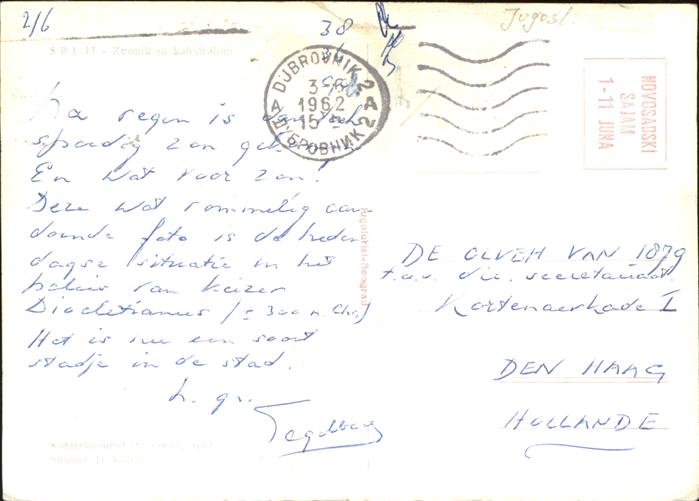 2/6
38
Jugosl.
S P L I T - Zvonik sa katedralom
DUBROVNIK 2
3-6
1962
15
A
A
ДУБРОВНИК 2
NOVOSADSKI
SAJAM
1-11 JUNA
Na regen is dan toch
spoedig zon
En wat voor zon!
Deze wat rommelig aan-
doende foto is de heden-
daagse situatie in het
paleis van keizer
Diocletianus (± 300 n. Chr.)
Het is nu een soort
stadje in de stad.
h. gr.
Tegelberg
Jugoturist-Beograd
DE OLVEH VAN 1879
t.a.v. div. secretariaat
Kortenaerkade 1
DEN HAAG
HOLLANDE